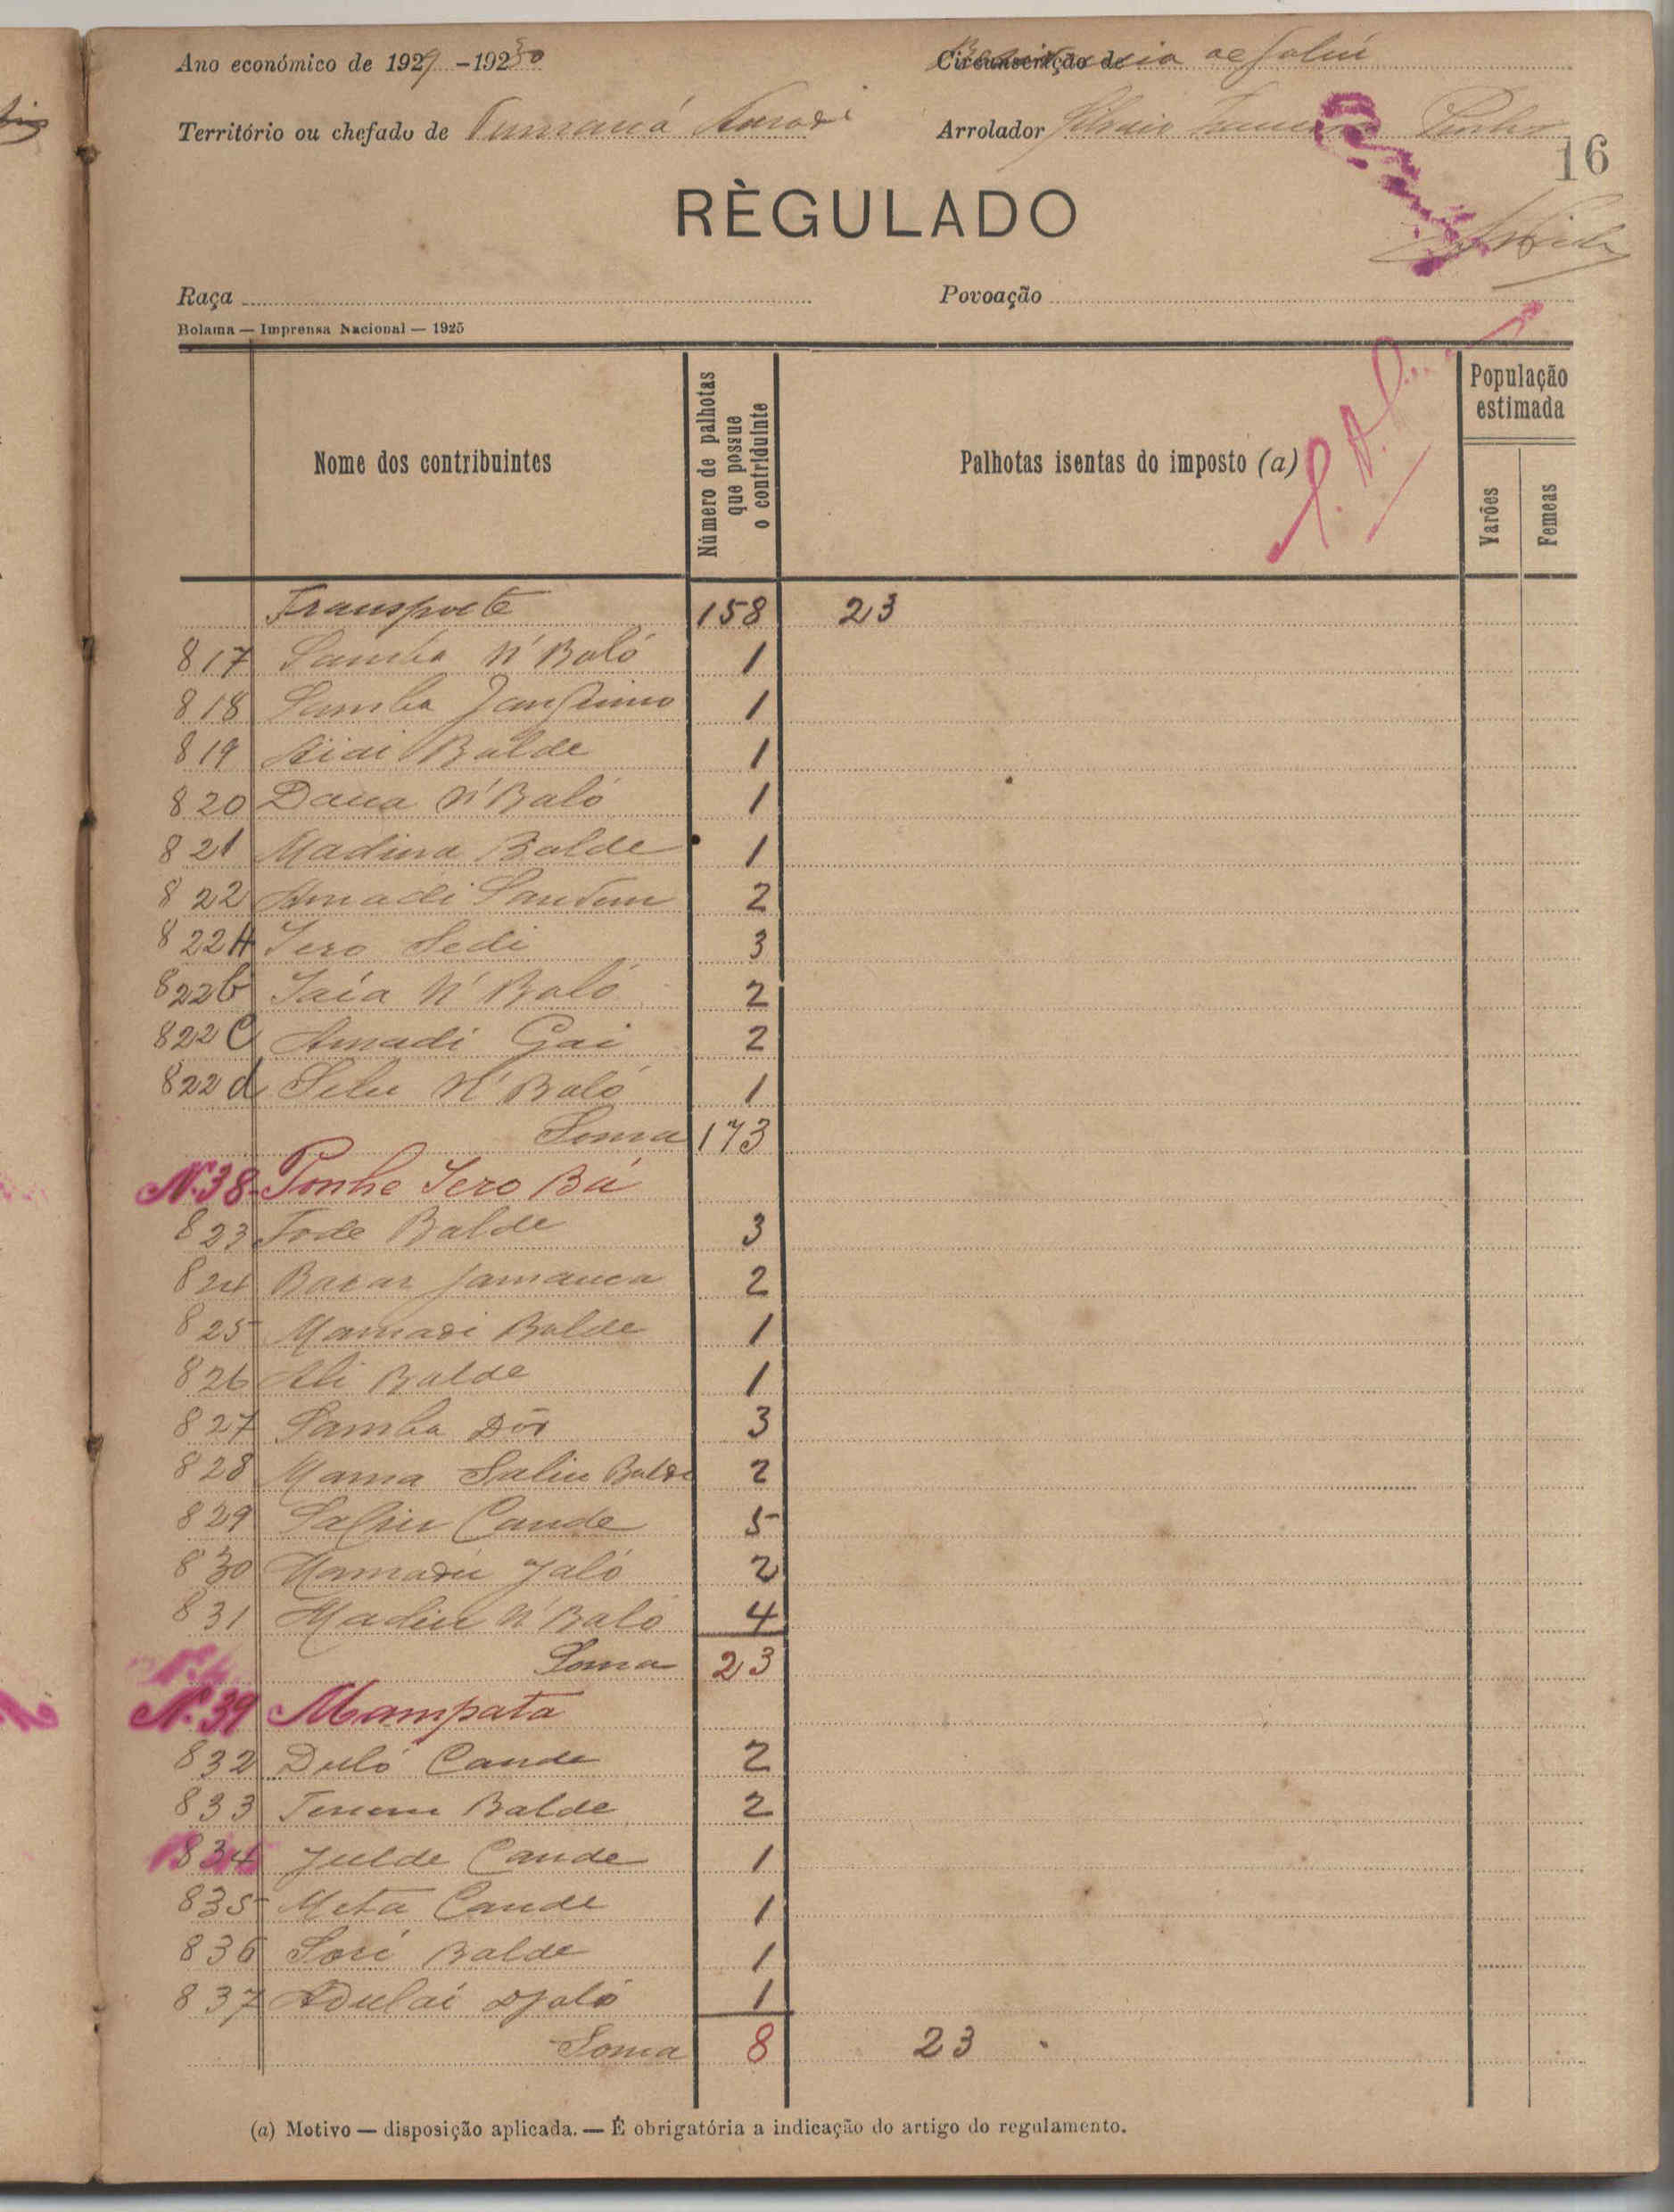 Ano económico de 1929 - 1930
Circunscrição de
Território ou chefado de Tumaná
Arrolador Silvaio Pinho
16
RÈGULADO
Raça
Povoação
Bolama — Imprensa Nacional — 1925
Nome dos contribuintes
Número de palhotas que possue o contriduinte
Palhotas isentas do imposto (a)
População estimada
Varões
Femeas
Transporte 158 23
817 Samba N'Baló 1
818 Samba 1
819 Balde 1
820 Daua N'Baló 1
821 Madina Balde 1
822 Amadi 2
822A Iero Sedi 3
822b Iaia N'Baló 2
822C Amadi Gai 2
822d N'Baló 1
Soma 173
N.38 Ponhe Iero Bá
823 Fode Balde 3
824 Bacar Jamanca 2
825 Mamadi Balde 1
826 Ali Balde 1
827 Samba 3
828 Mama Saliu Balde 2
829 Saliu Cande 5
830 Mamadú Jaló 2
831 Madiu N'Baló 4
Soma 23
N.39 Mampata
832 Duló Cande 2
833 Balde 2
834 Julde Cande 1
835 Meta Cande 1
836 Sori Balde 1
837 Adulai Djaló 1
Soma 8 23
(a) Motivo — disposição aplicada. — É obrigatória a indicação do artigo do regulamento.